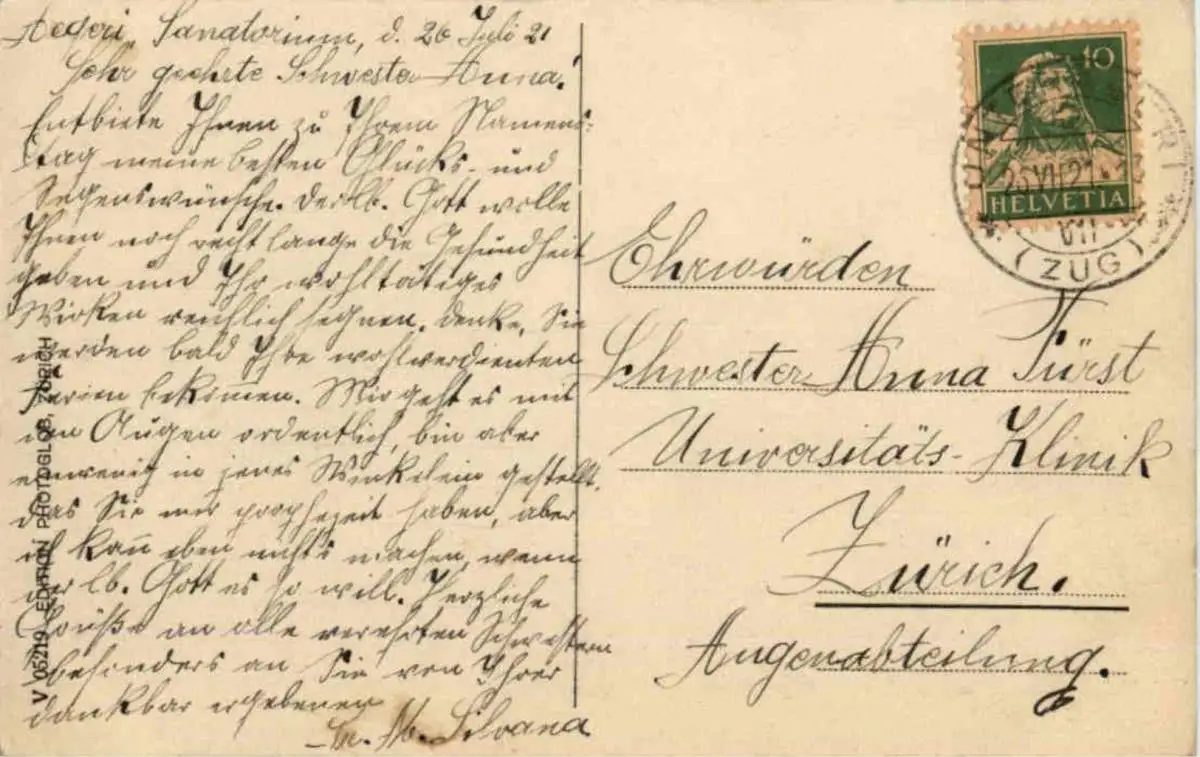 Aegeri, Sanatorium, d. 26 Juli 21
Sehr geehrte Schwester Anna!
Entbiete Ihnen zu Ihrem Namens-
tag meine besten Glücks- und
Segenswünsche. Der lb. Gott wolle
Ihnen noch recht lange die Gesundheit
geben und Ihr wohltätiges
Wirken reichlich segnen. Denke, Sie
werden bald Ihre wohlverdienten
Ferien bekommen. Mir geht es mit
den Augen ordentlich, bin aber
ein wenig in jenes Winkelein gestellt,
das Sie mir prophezeit haben, aber
ich kann eben nichts machen, wenn
der lb. Gott es so will. Herzliche
Grüße an alle verehrten Schwestern
besonders an Sie von Ihrer
dankbar ergebenen
Sr. M. Silvana
V 05219 EDITION PHOTOGLOB, ZÜRICH
10
HELVETIA
VII
(ZUG)
Ehrwürden
Schwester Anna Fürst
Universitäts-Klinik
Zürich.
Augenabteilung.